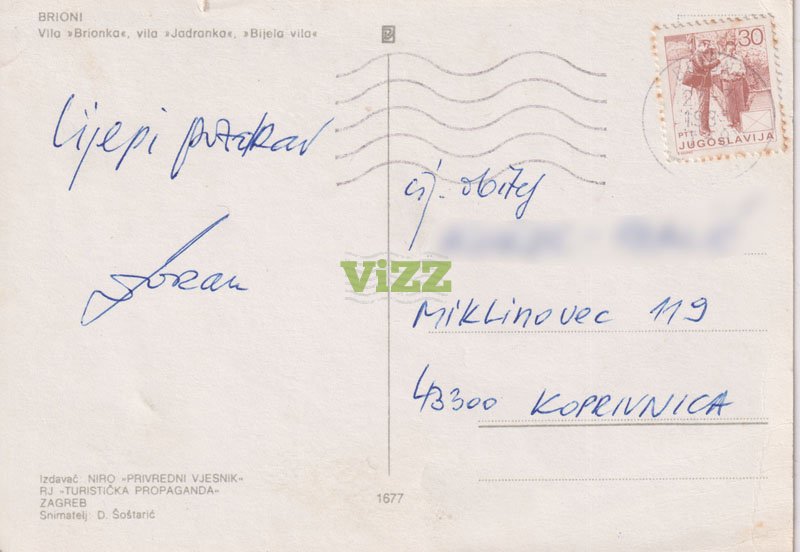 BRIONI
Vila »Brionka«, vila »Jadranka«, »Bijela vila«
30
PTT
JUGOSLAVIJA
Lijepi pozdrav
Zoran
cij. obitelj
ViZZ
Miklinovec 119
43300 KOPRIVNICA
Izdavač: NIRO »PRIVREDNI VJESNIK«
RJ »TURISTIČKA PROPAGANDA«
ZAGREB
Snimatelj: D. Šoštarić
1677